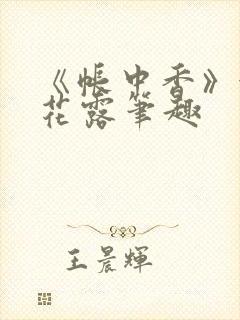 《帐中香》
花露笔趣
王晨辉